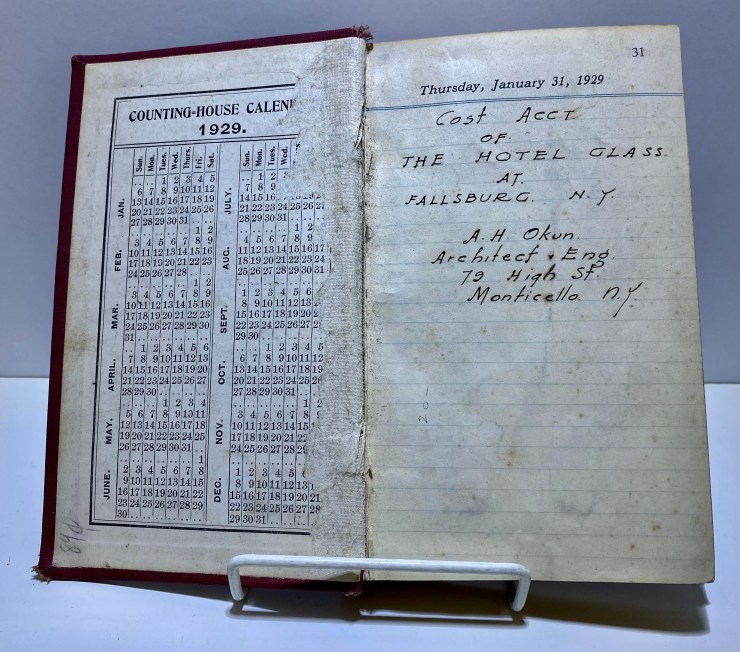 COUNTING-HOUSE CALEN
1929.
Sun. Mon. Tues. Wed. Thurs. Fri. Sat.
JAN.
.. .. 1 2 3 4 5
6 7 8 9 10 11 12
13 14 15 16 17 18 19
20 21 22 23 24 25 26
27 28 29 30 31 .. ..
FEB.
.. .. .. .. .. 1 2
3 4 5 6 7 8 9
10 11 12 13 14 15 16
17 18 19 20 21 22 23
24 25 26 27 28 .. ..
MAR.
.. .. .. .. .. 1 2
3 4 5 6 7 8 9
10 11 12 13 14 15 16
17 18 19 20 21 22 23
24 25 26 27 28 29 30
31 .. .. .. .. .. ..
APRIL.
.. 1 2 3 4 5 6
7 8 9 10 11 12 13
14 15 16 17 18 19 20
21 22 23 24 25 26 27
28 29 30 .. .. .. ..
MAY.
.. .. .. 1 2 3 4
5 6 7 8 9 10 11
12 13 14 15 16 17 18
19 20 21 22 23 24 25
26 27 28 29 30 31 ..
JUNE.
.. .. .. .. .. .. 1
2 3 4 5 6 7 8
9 10 11 12 13 14 15
16 17 18 19 20 21 22
23 24 25 26 27 28 29
30 .. .. .. .. .. ..
Sun. Mon. Tues. Wed.
JULY.
.. 1 2
7 8 9
14 15 16
21 22 23 24 25 26 27
28 29 30 31 .. ..
AUG.
.. .. .. .. 1 2
4 5 6 7 8 9
11 12 13 14 15 16 17
18 19 20 21 22 23 24
25 26 27 28 29 30 31
SEPT.
1 2 3 4 5 6
8 9 10 11 12 13
15 16 17 18 19 20
22 23 24 25 26 27
29 30 .. .. .. ..
OCT.
.. .. 1 2 3 4 5
6 7 8 9 10 11 12
13 14 15 16 17 18 19
20 21 22 23 24 25 26
27 28 29 30 31 ..
NOV.
.. .. .. .. .. 1
3 4 5 6 7 8
10 11 12 13 14 15
17 18 19 20 21 22
24 25 26 27 28 29
DEC.
1 2 3 4 5 6
8 9 10 11 12 13
15 16 17 18 19 20 21
22 23 24 25 26 27 28
29 30 31 .. .. ..
31
Thursday, January 31, 1929
Cost Acct.
OF.
THE HOTEL GLASS.
AT.
FALLSBURG. N.Y.
A.H. Okun.
Architect & Eng.
79 High St.
Monticello. N.Y.
20-